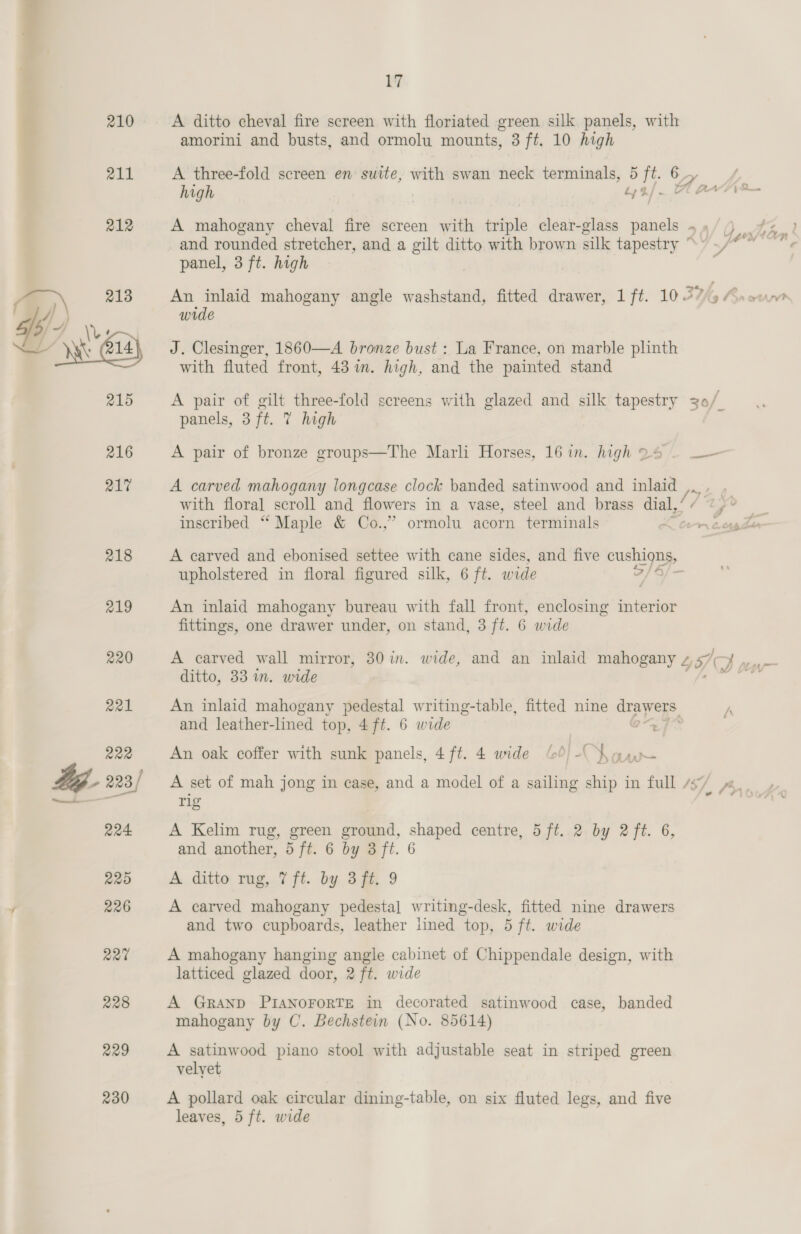 17
210 A ditto cheval fire screen with floriated green silk panels, with
amorini and busts, and ormolu mounts, 3 ft. 10 high
211 A three-fold screen en suite, with swan neck terminals, 5 ft. 6
high
212 A mahogany cheval fire screen with triple clear-glass panels
and rounded stretcher, and a gilt ditto with brown silk tapestry
panel, 3 ft. high
213 An inlaid mahogany angle washstand, fitted drawer, 1 ft. 10
wide
214 J. Clesinger, 1860—A bronze bust: La France, on marble plinth
with fluted front, 43 in. high, and the painted stand
215 A pair of gilt three-fold screens with glazed and silk tapestry 30/-
panels, 3 ft. 7 high
216 A pair of bronze groups—The Marli Horses, 16 in. high
217 A carved mahogany longcase clock banded satinwood and inlaid
with floral scroll and flowers in a vase, steel and brass dial,
inscribed “Maple & Co.,” ormolu acorn terminals
218 A carved and ebonised settee with cane sides, and five cushions,
upholstered in floral figured silk, 6 ft. wide
219 An inlaid mahogany bureau with fall front, enclosing interior
fittings, one drawer under, on stand, 3 ft. 6 wide
220 A carved wall mirror, 30 in. wide, and an inlaid mahogany
ditto, 33 in. wide
221 An inlaid mahogany pedestal writing-table, fitted nine drawers
and leather-lined top, 4 ft. 6 wide
222 An oak coffer with sunk panels, 4 ft. 4 wide
223 A set of mah jong in case, and a model of a sailing ship in full
rig
224 A Kelim rug, green ground, shaped centre, 5 ft. 2 by 2 ft. 6,
and another, 5 ft. 6 by 3 ft. 6
225 A ditto rug, 7 ft. by 3 ft. 9
226 A carved mahogany pedestal writing-desk, fitted nine drawers
and two cupboards, leather lined top, 5 ft. wide
227 A mahogany hanging angle cabinet of Chippendale design, with
latticed glazed door, 2 ft. wide
228 A GRAND PIANOFORTE in decorated satinwood case, banded
mahogany by C. Bechstein (No. 85614)
229 A satinwood piano stool with adjustable seat in striped green
velvet
230 A pollard oak circular dining-table, on six fluted legs, and five
leaves, 5 ft. wide